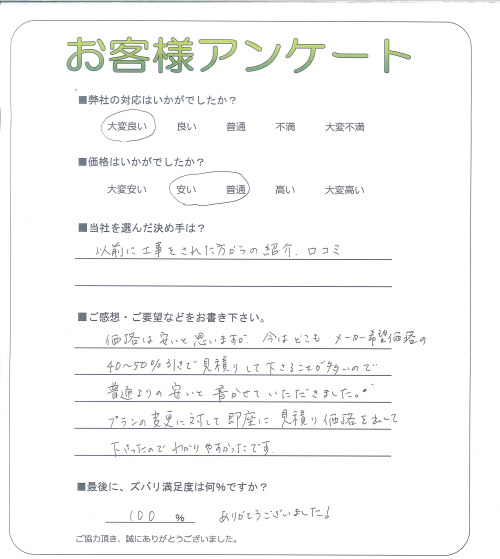 お客様アンケート
■弊社の対応はいかがでしたか？
大変良い 良い 普通 不満 大変不満
■価格はいかがでしたか？
大変安い 安い 普通 高い 大変高い
■当社を選んだ決め手は？
以前に工事をされた方からの紹介、口コミ
■ご感想・ご要望などをお書き下さい。
価格は安いと思いますが 今はどこも メーカー希望価格の
40～50%引きで見積りして下さることが多いので
普通よりの安いと書かせていただきました。
プランの変更に対して即座に見積り価格を出して
下さったのでわかりやすかったです。
■最後に、ズバリ満足度は何%ですか？
100 % ありがとうございました!
ご協力頂き、誠にありがとうございました。